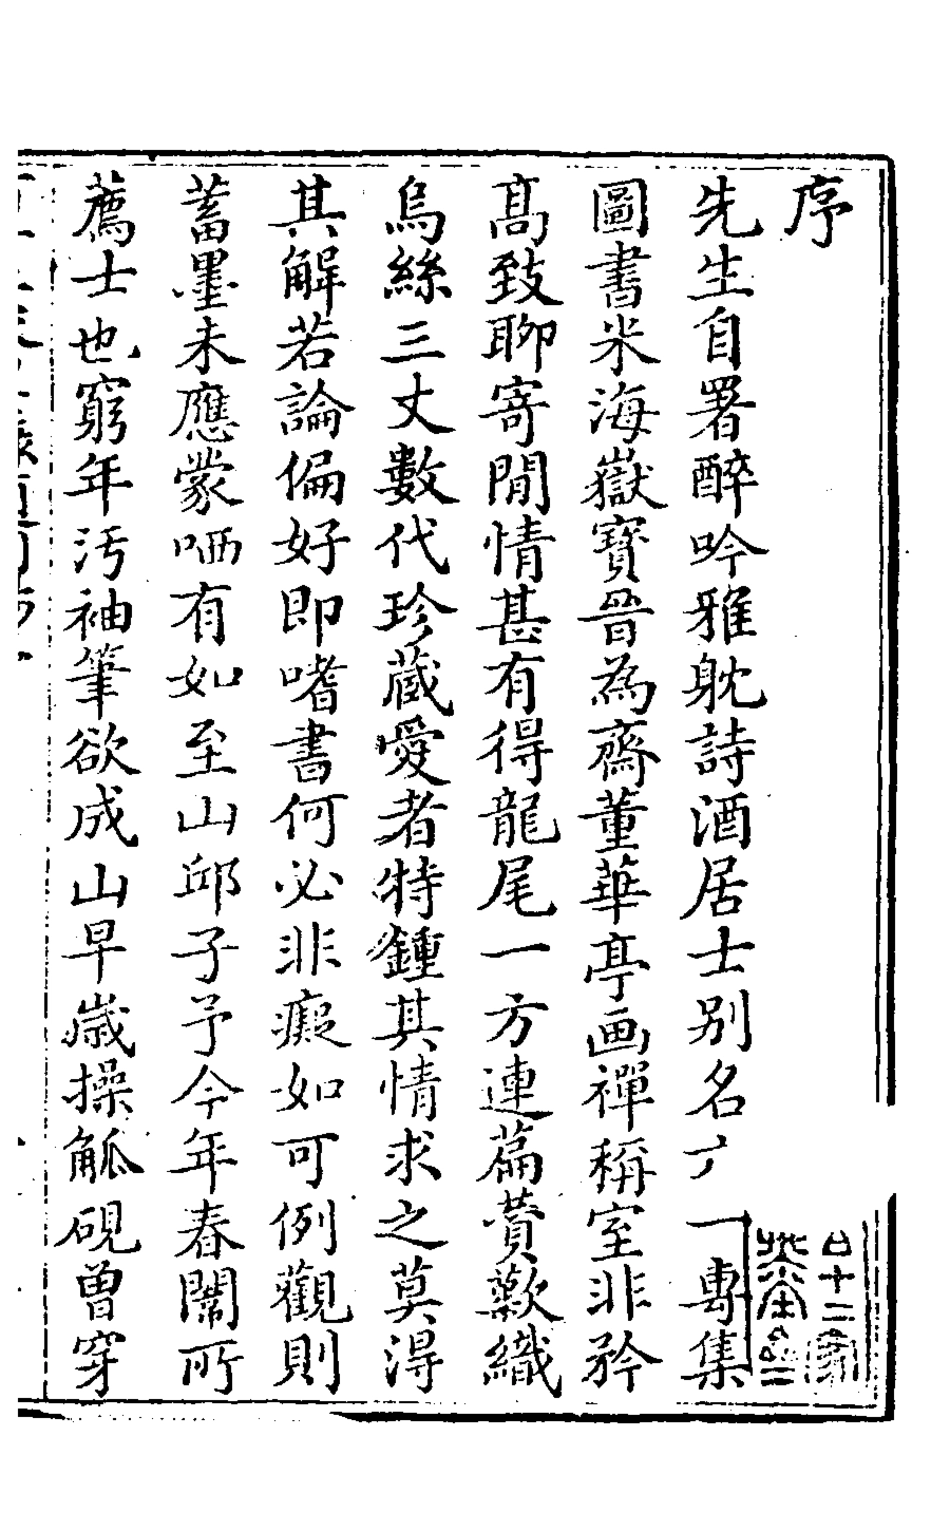 序
先生自署醉吟雅躭詩酒居士別名 一專集
圖書米海嶽寶晉為齋董華亭画禪稱室非矜
髙致聊寄閒情甚有得龍尾一方連篇賛歎織
烏絲三丈數代珍蔵愛者特鍾其情求之莫得
其解若論偏好即嗜書何必非癡如可例觀則
蓄墨未應蒙哂有如至山邱子予今年春闈所
薦士也窮年汚袖筆欲成山早歲操觚硯曾穿